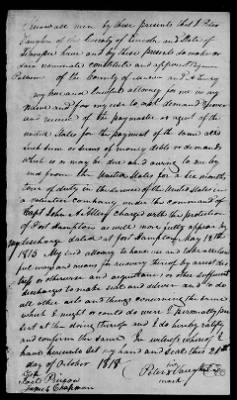 Know all men by these presents that I Peter
Vaughn of the County of Lincoln and State of
Tennessee have and by these presents do make or
dain nominate constitute and appoint
of the County of and
my true and lawful attorney for me in my
Name and for my use to ask demand recover
and receive of the paymaster or agent of the
united States for the payment of the same all &
such sum or sums of money debts or demands
which is or may be due and owing to me by
and from the United States for a Six months
tour of duty in the service of the United States in
a volunteer company under the command of
Capt John A. charg'd with the protection
of Fort Hampton as will more fully appear by
my discharge dated at Fort Hampton May 18th
1813 My said attorney to have use and take all law
ful ways and means for the recovery thereof by arrest dis
tress or otherwise and acquittances or other sufficient
discharge to make seal and deliver and to do
all other acts and things concerning the same
which I might or could do were I personally pre
sent at the doing thereof and I do hereby ratify
and confirm the same. In witness whereof I
have hereunto set my hand and seal this
day of October 1818
Peter Vaughn
mark
Pinson
James Chapman